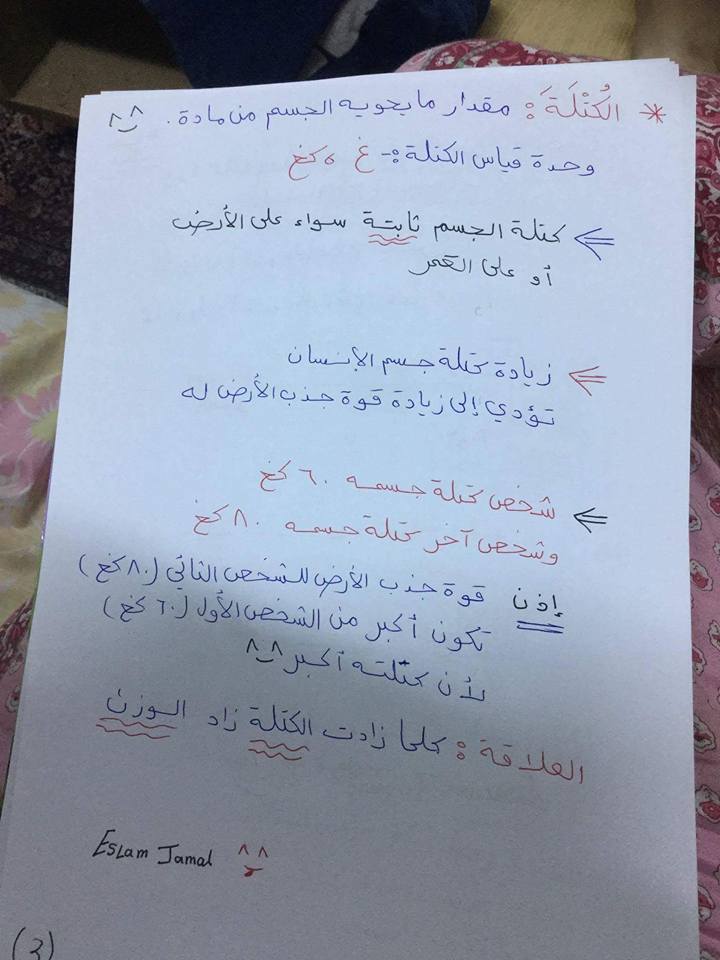 * الكُتْلَةَ : مقدار ما يحويه الجسم من مادة . ^‿^
وحدة قياس الكتلة :- غ ، كغ
⇐ كتلة الجسم ثابتة سواء على الأرض
أو على القمر
⇐ زيادة كتلة جسم الإنسان
تؤدي إلى زيادة قوة جذب الأرض له
⇐ شخص كتلة جسمه ٦٠ كغ
وشخص آخر كتلة جسمه ٨٠ كغ
إذن قوة جذب الأرض للشخص الثاني (٨٠ كغ)
تكون أكبر من الشخص الأول (٦٠ كغ)
لأن كتلته أكبر ^‿^
العلاقة : كلما زادت الكتلة زاد الوزن
Eslam Jamal ^‿^
(3)